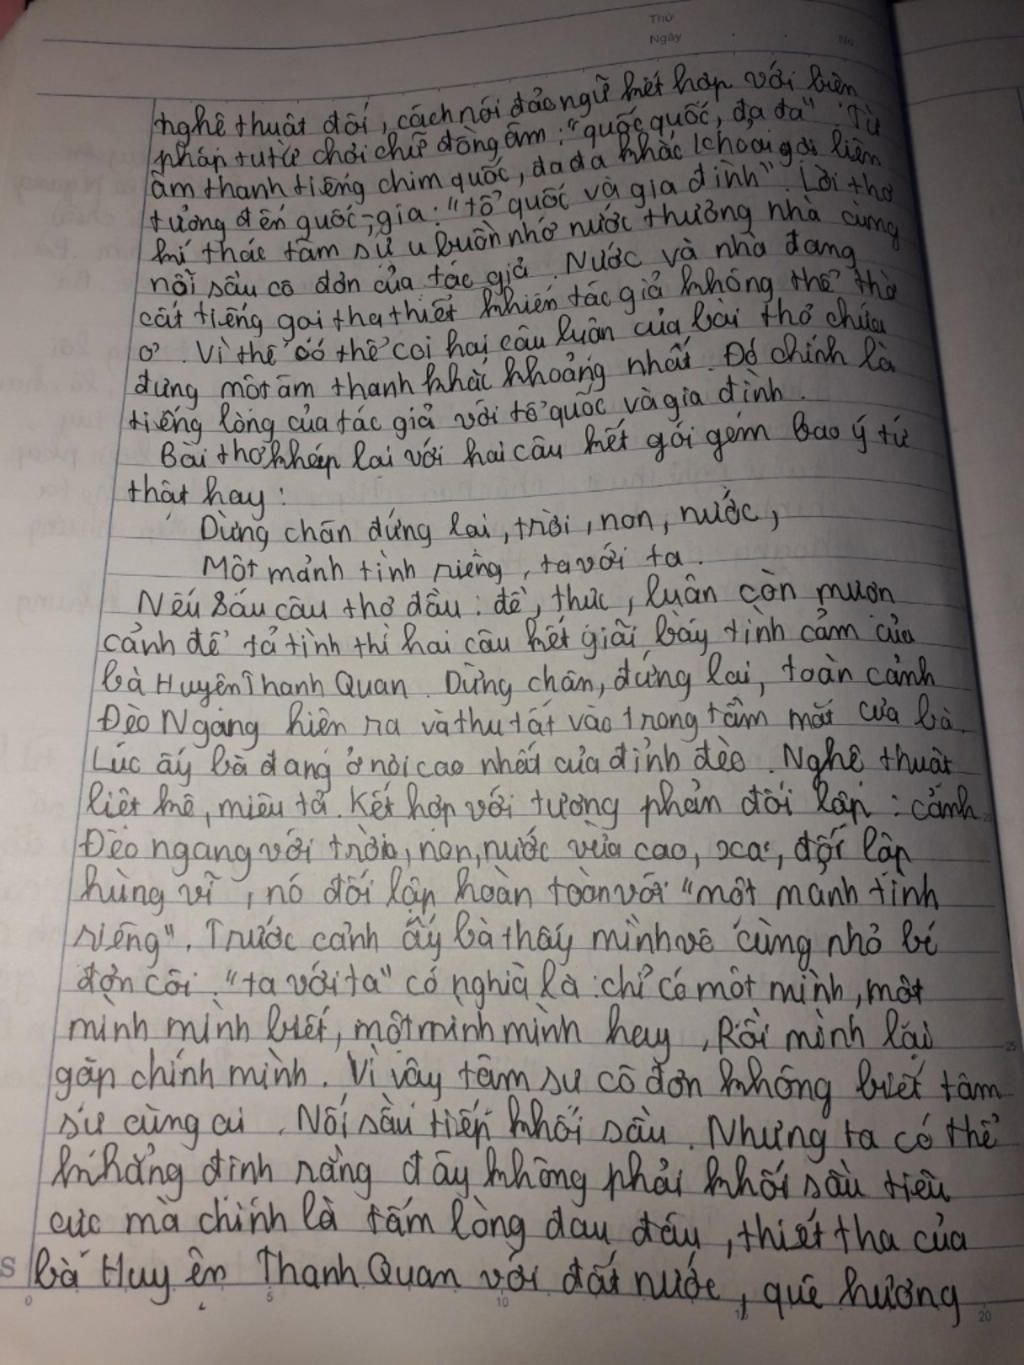 Thứ
Ngày
No
nghệ thuật đối, cách nói đảo ngữ kết hợp với biện
pháp tu từ chơi chữ đồng âm: "quốc quốc, đa đa". Từ
âm thanh tiếng chim quốc, đa đa khắc khoải gợi liên
tưởng đến quốc, gia: "tổ quốc và gia đình". Lời thơ
kí thác tâm sự u buồn nhớ nước thương nhà cùng
nỗi sầu cô đơn của tác giả. Nước và nhà đang
cất tiếng gọi tha thiết khiến tác giả không thể thờ
ơ. Vì thế có thể coi hai câu luận của bài thơ chứa
đựng một âm thanh khắc khoảng nhất. Đó chính là
tiếng lòng của tác giả với tổ quốc và gia đình.
Bài thơ khép lại với hai câu kết gói gém bao ý tứ
thật hay:
Dừng chân đứng lại, trời, non, nước,
Một mảnh tình riêng, ta với ta.
Nếu sáu câu thơ đầu: đề, thực, luận còn mượn
cảnh để tả tình thì hai câu kết giải bày tình cảm của
bà Huyện Thanh Quan. Dừng chân, đứng lại, toàn cảnh
Đèo Ngang hiện ra và thu tất vào trong tầm mắt của bà.
Lúc ấy bà đang ở nơi cao nhất của đỉnh đèo. Nghệ thuật
liệt kê, miêu tả. Kết hợp với tương phản đối lập: cảnh
Đèo ngang với trời, non, nước vừa cao, xa, đối lập
hùng vĩ, nó đối lập hoàn toàn với "một mảnh tình
riêng". Trước cảnh ấy bà thấy mình vô cùng nhỏ bé
đơn côi. "ta với ta" có nghĩa là: chỉ có một mình, một
mình mình biết, một mình mình hay, Rồi mình lại
gặp chính mình. Vì vậy tâm sự cô đơn không biết tâm
sự cùng ai. Nối sầu tiếp khối sầu. Nhưng ta có thể
khẳng định rằng đây không phải khối sầu tiêu
cực mà chính là tấm lòng đau đáu, thiết tha của
bà Huyện Thanh Quan với đất nước, quê hương
S
0 5 10 20